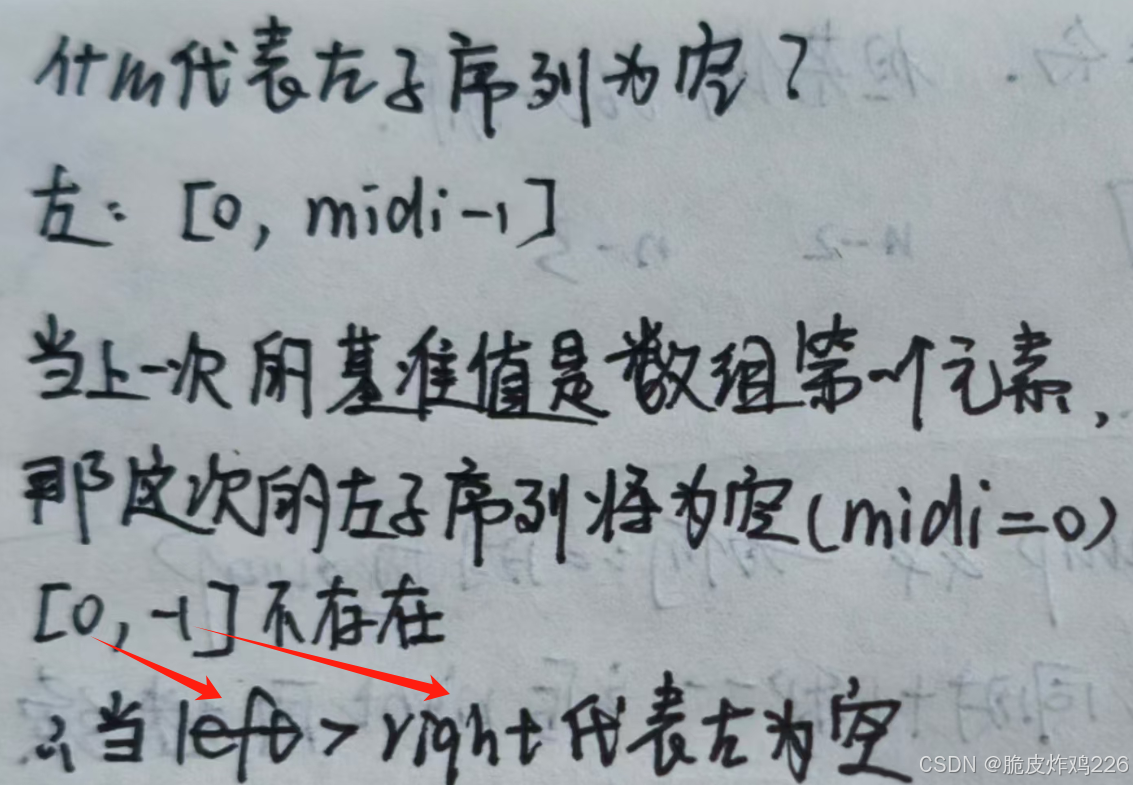 什m代表左子序列为空?
左: [0, midi-1]
当上一次的基准值是数组第一个元素,
那这次的左子序列将为空(midi=0)
[0, -1]不存在
∴当left>right代表左为空
CSDN @脆皮炸鸡226